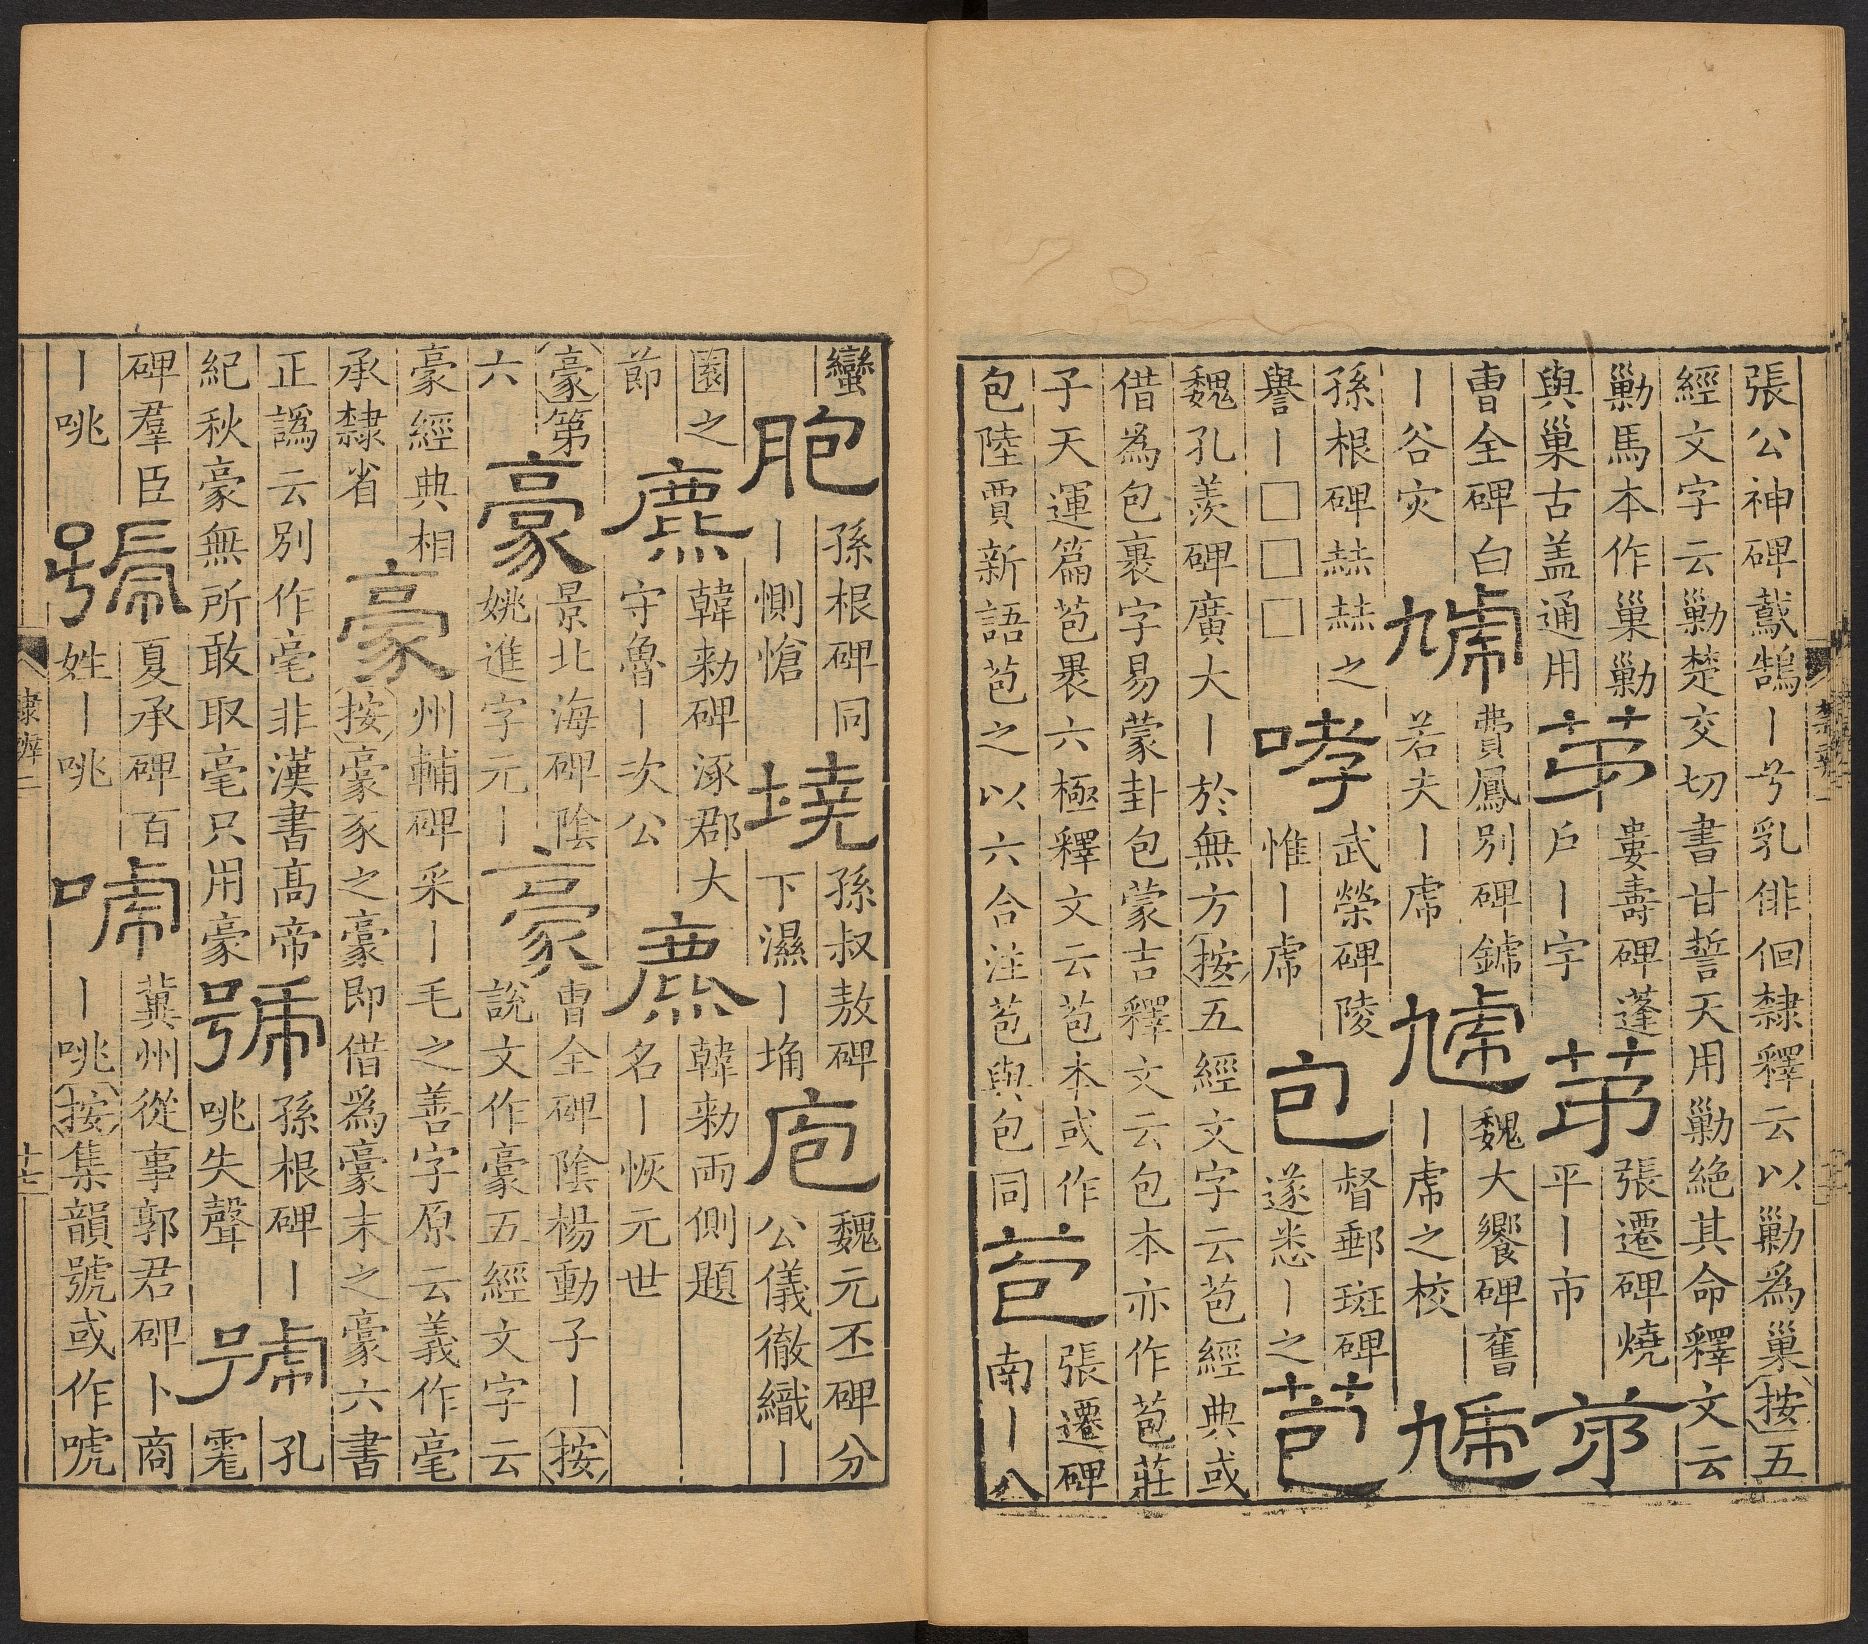 張公神碑鷰鵠丨兮乳俳佪隸釋云以勦為巢按五
經文字云勦楚交切書甘誓天用勦絕其命釋文云
勦馬本作巢勦
與巢古盖通用
茅
婁壽碑蓬
戶丨字
茅
張遷碑燒
平丨市
茅
曹全碑白
丨谷灾
虓
費鳳別碑鏬
若夫丨虎
虓
魏大饗碑奮
丨虎之校
虓
孫根碑赫赫之
譽丨□□□
哮
武榮碑陵
惟丨虎
包
督郵斑碑
遂悉丨之
苞
魏孔羨碑廣大丨於無方按五經文字云苞經典或
借為包裹字易蒙卦包蒙吉釋文云包本亦作苞莊
子天運篇苞褁六極釋文云苞本或作
包陸賈新語苞之以六合注苞與包同
苞
張遷碑
南丨八
蠻
胞
孫根碑同
丨惻愴
墝
孫叔敖碑
下濕丨埆
庖
魏元丕碑分
公儀徹織丨
園之
節
麃
韓勑碑涿郡大
守魯丨次公
麃
韓勑兩側題
名丨恢元世
豪第
六
豪
景北海碑陰
姚進字元丨
豪
曹全碑陰楊動子丨按
說文作豪五經文字云
豪經典相
承隸省
豪
州輔碑采丨毛之善字原云義作毫
按豪豕之豪即借為豪末之豪六書
正譌云別作毫非漢書高帝
紀秋豪無所敢取毫只用豪
號
孫根碑丨
咷失聲
號
孔
碑羣臣
丨咷
號
夏承碑百
姓丨咷
唬
冀州從事郭君碑卜商
丨咷按集韻號或作唬
隸辨二